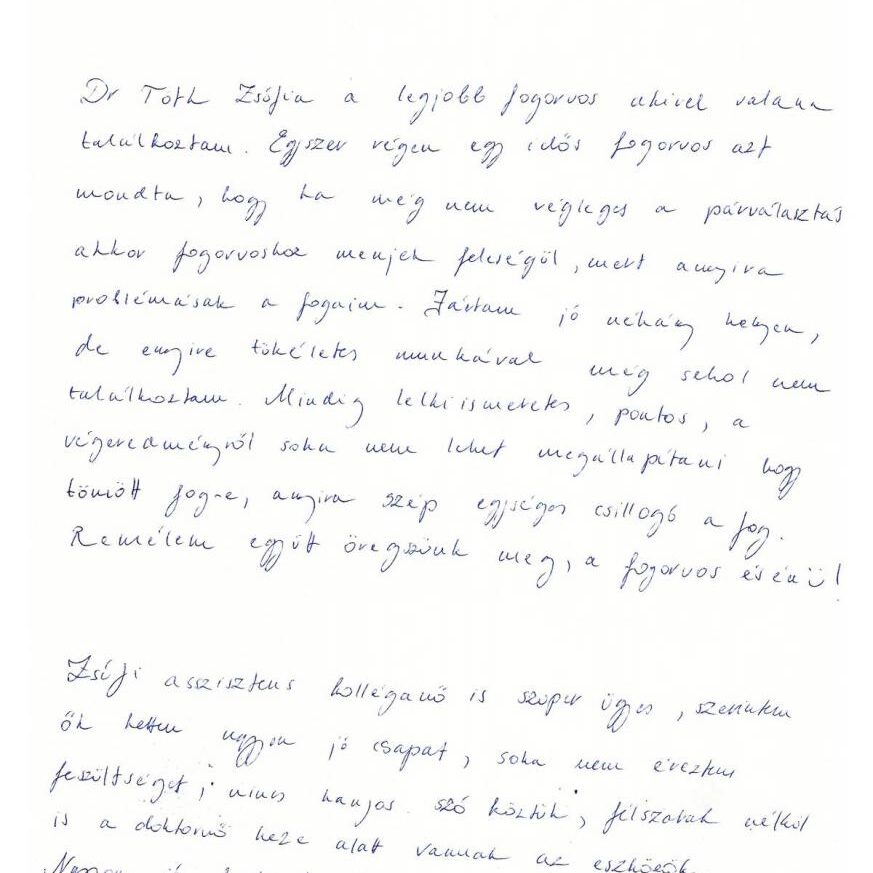 Dr Tóth Zsófia a legjobb fogorvos akivel valaha
találkoztam. Egyszer régen egy idős fogorvos azt
mondta, hogy ha még nem végleges a párválasztás
akkor fogorvoshoz menjek feleségül, mert annyira
problémásak a fogaim. Jártam jó néhány helyen,
de ennyire tökéletes munkával még sehol nem
találkoztam. Mindig lelkiismeretes, pontos, a
végeredményről soha nem lehet megállapítani hogy
tömött fog-e, annyira szép egységes csillogó a fog.
Remélem együtt öregszünk meg, a fogorvos és én!
Zsófi asszisztens kolléganő is szuper ügyes, szerintem
ők ketten nagyon jó csapat, soha nem éreztem
feszültséget, nincs hangos szó köztük, félszavak nélkül
is a doktornő keze alatt vannak az eszközök.